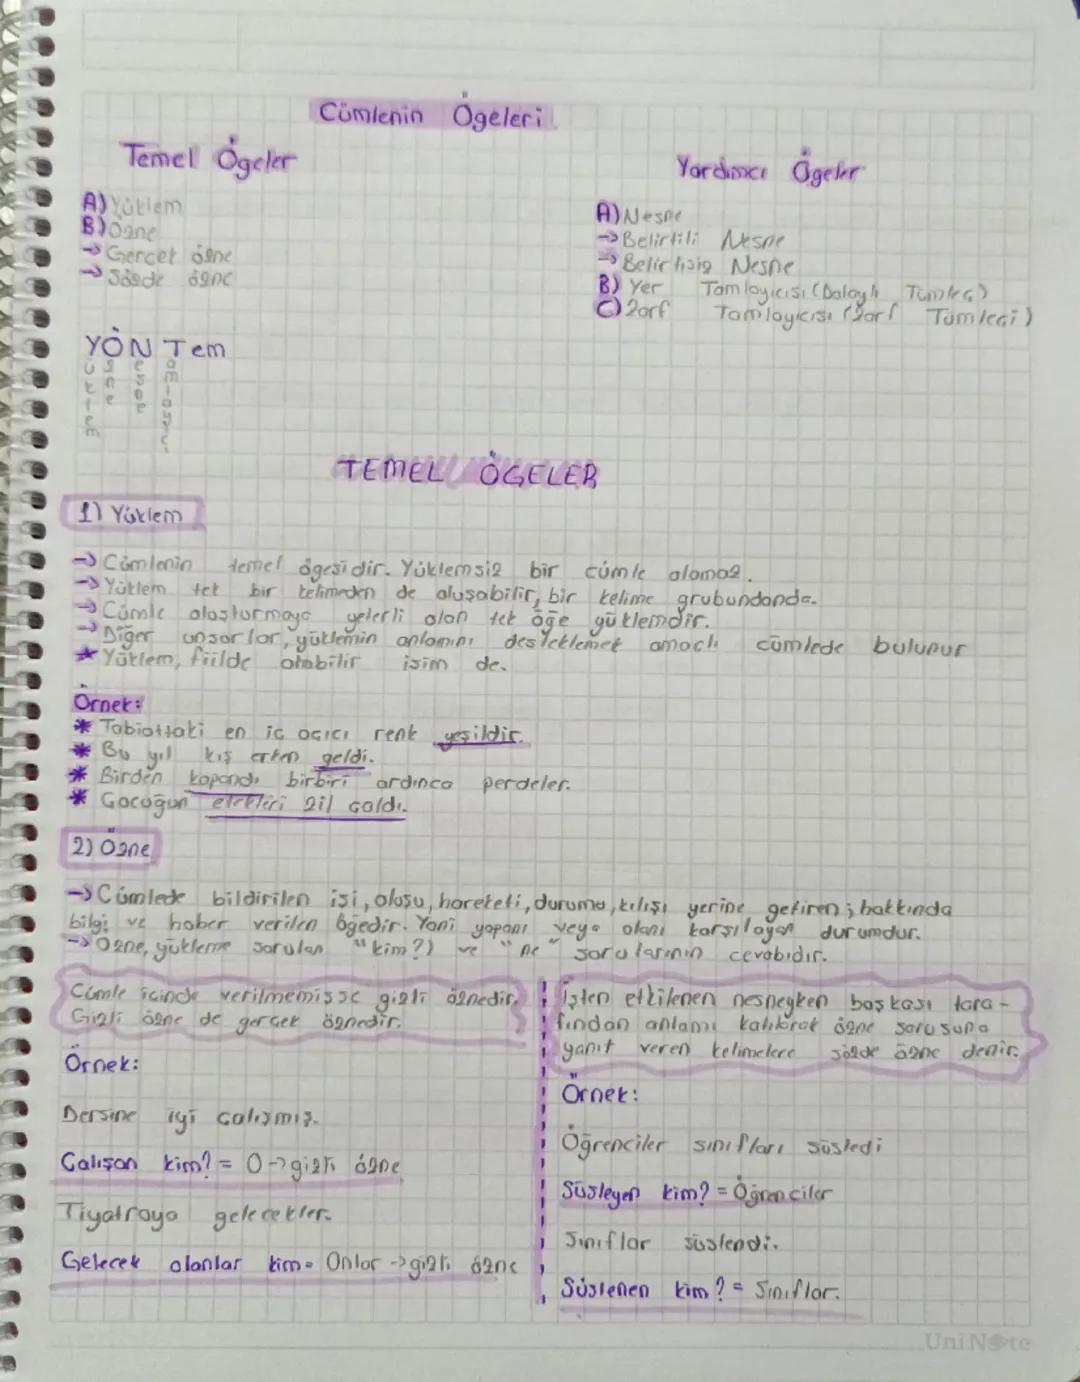 Cümlenin Ögeleri
Temel Ögeler
A) Yüklem
B) Özne
→ Gerçek özne
→ Sözde özne
Yardımcı Ögeler
A) Nesne
→ Belirtili Nesne
→ Belirtisiz Nesne
B) Yer Tamlayıcısı (Dolaylı Tümleç)
C) Zarf Tamlayıcısı (Zarf Tümleci)
YÖN Tem
üklem
zne
esne
amlayıcı
TEMEL ÖGELER
1) Yüklem
→ Cümlenin temel ögesidir. Yüklemsiz bir cümle olamaz.
→ Yüklem tek bir kelimeden de oluşabilir, bir kelime grubundanda.
→ Cümle oluşturmaya yeterli olan tek öğe yüklemdir.
→ Diğer unsurlar, yüklemin anlamını desteklemek amaçlı cümlede bulunur
* Yüklem, fiilde olabilir isim de.
Örnek:
* Tabiattaki en iç açıcı renk yeşildir.
* Bu yıl kış erken geldi.
* Birden kapandı birbiri ardınca perdeler.
* Çocuğun etekleri zil çaldı.
2) Özne
→ Cümlede bildirilen işi, oluşu, hareketi, durumu, kılışı yerine getiren; hakkında
bilgi ve haber verilen ögedir. Yani yapanı veya olanı karşılayan durumdur.
→ Özne, yükleme sorulan "kim?) ve "ne" sorularının cevabıdır.
Cümle içinde verilmemişse gizli öznedir.
Gizli özne de gerçek öznedir.
Örnek:
Dersine iyi çalışmış.
Çalışan kim? = O → gizli özne
Tiyatroya gelecekler.
Gelecek olanlar kim = Onlar → gizli özne
İşten etkilenen nesneyken başkası tara-
fından anlamı kalıbrak özne sorusuna
yanıt veren kelimelere sözde özne denir.
Örnek:
Öğrenciler sınıfları süsledi
Süsleyen kim? = Öğrenciler
Sınıflar süslendi.
Süslenen kim? = Sınıflar.
UniNote